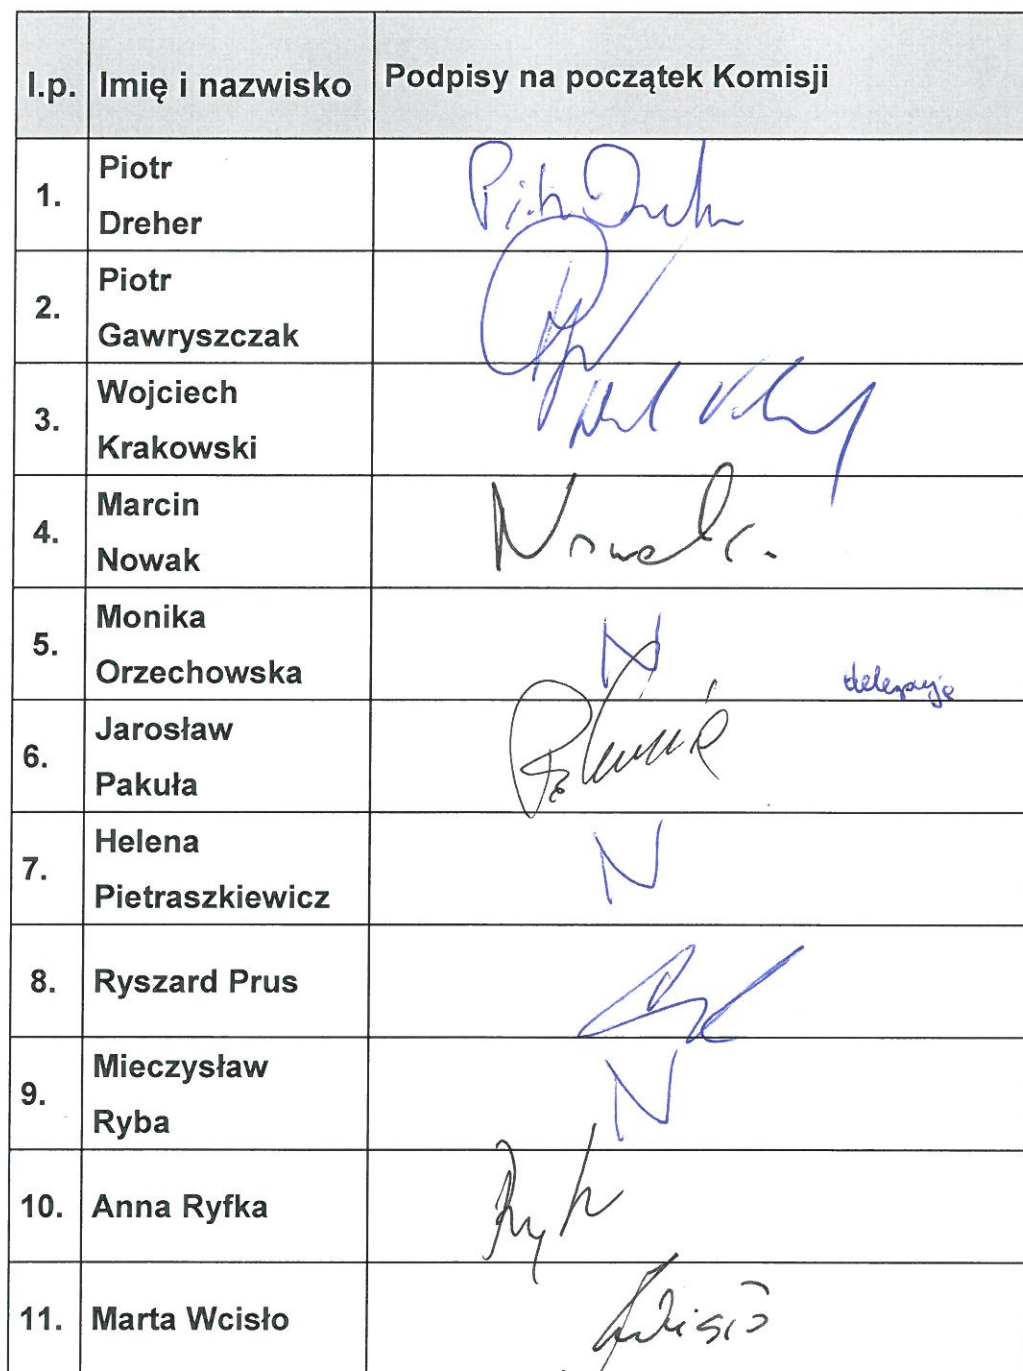 l.p. Imię i nazwisko Podpisy na początek Komisji
1. Piotr
Dreher
Piotr Dreher
2. Piotr
Gawryszczak
3. Wojciech
Krakowski
4. Marcin
Nowak
Nowak
5. Monika
Orzechowska
N
delegacja
6. Jarosław
Pakuła
7. Helena
Pietraszkiewicz
N
8. Ryszard Prus
9. Mieczysław
Ryba
N
10. Anna Ryfka
11. Marta Wcisło